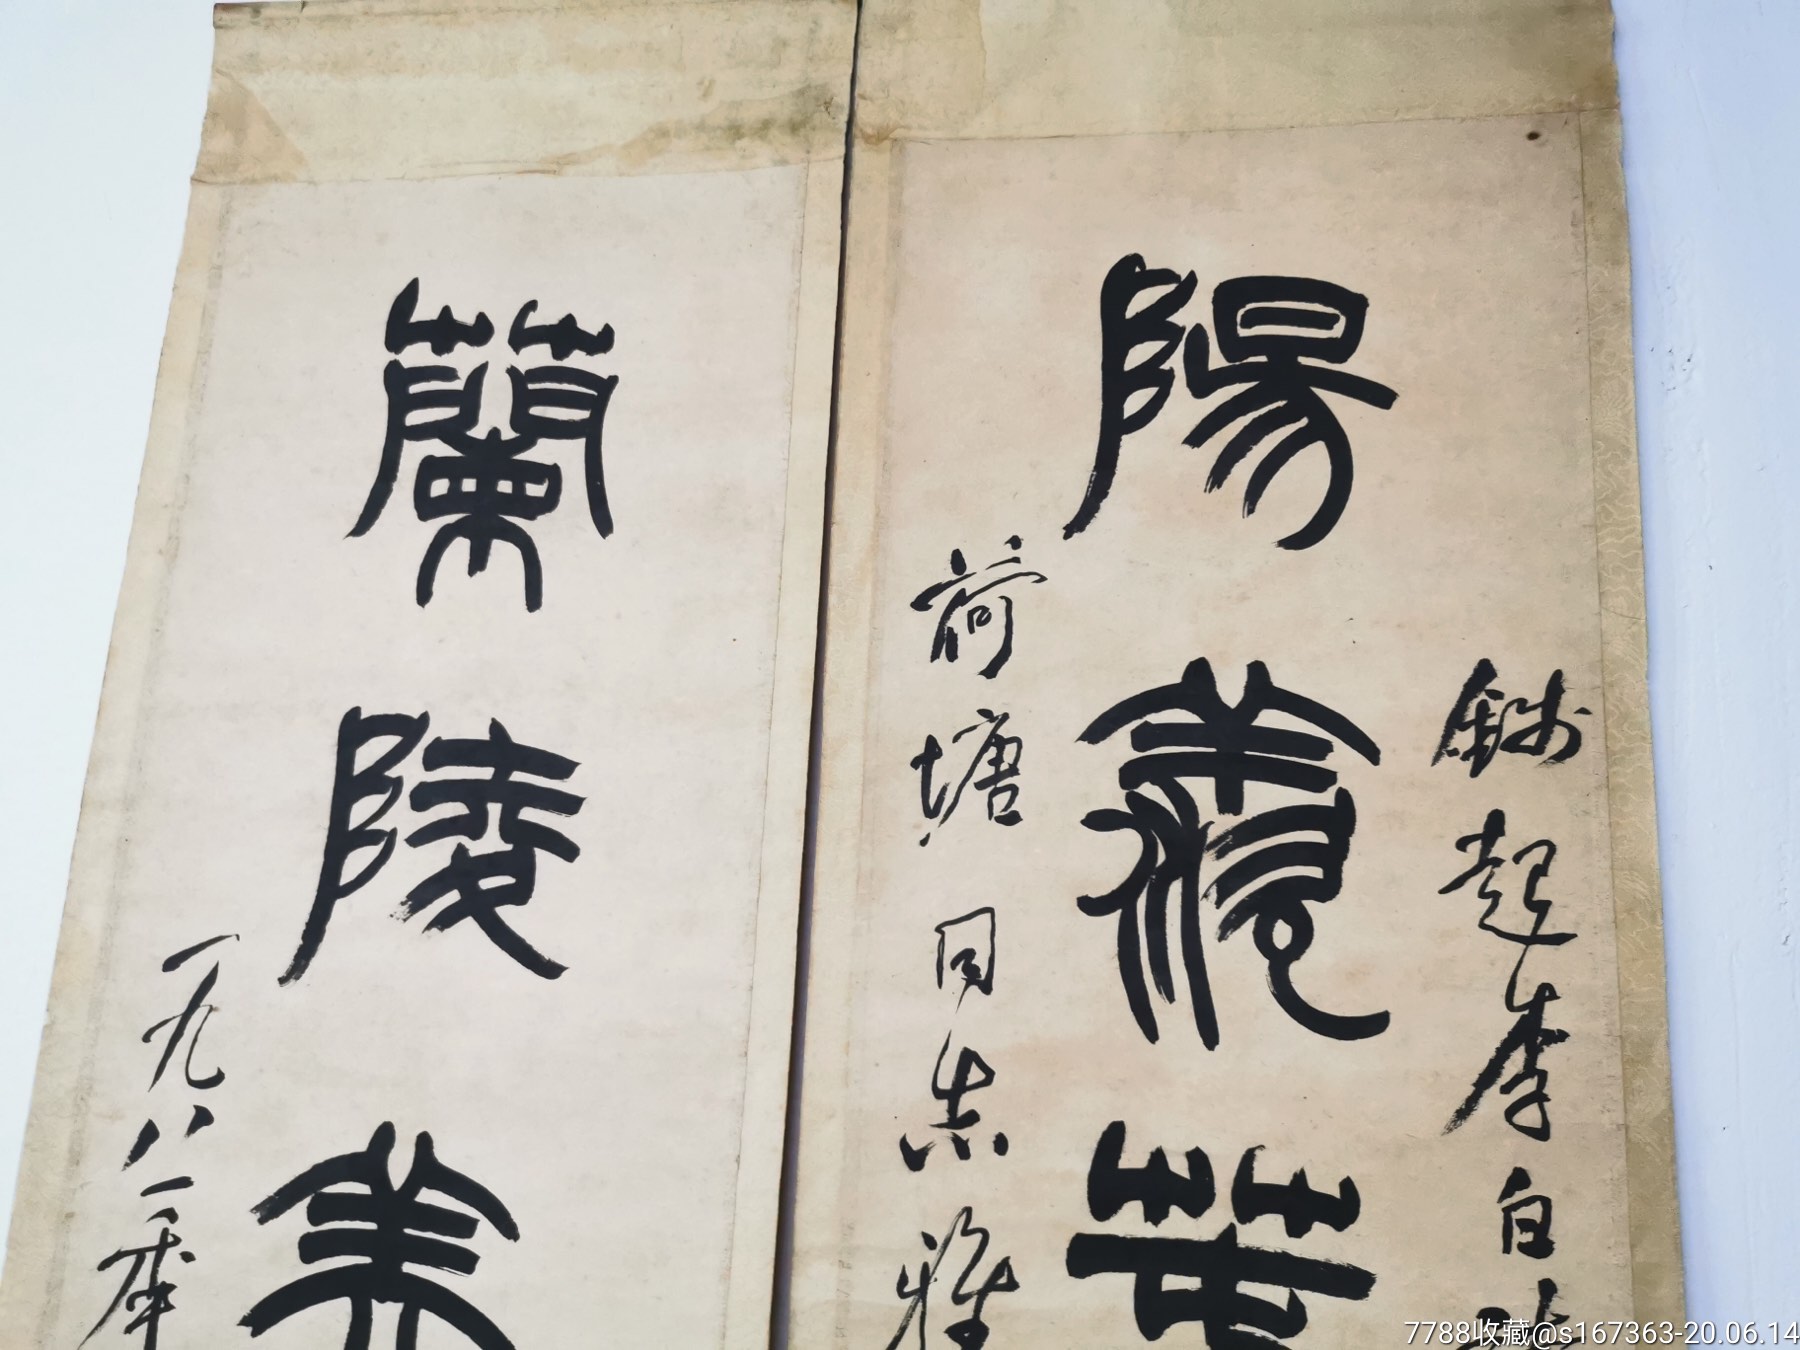 錢起李白
陽羨春
荷塘同志雅
蘭陵美
一九八一年
7788收藏@s167363-20.06.14